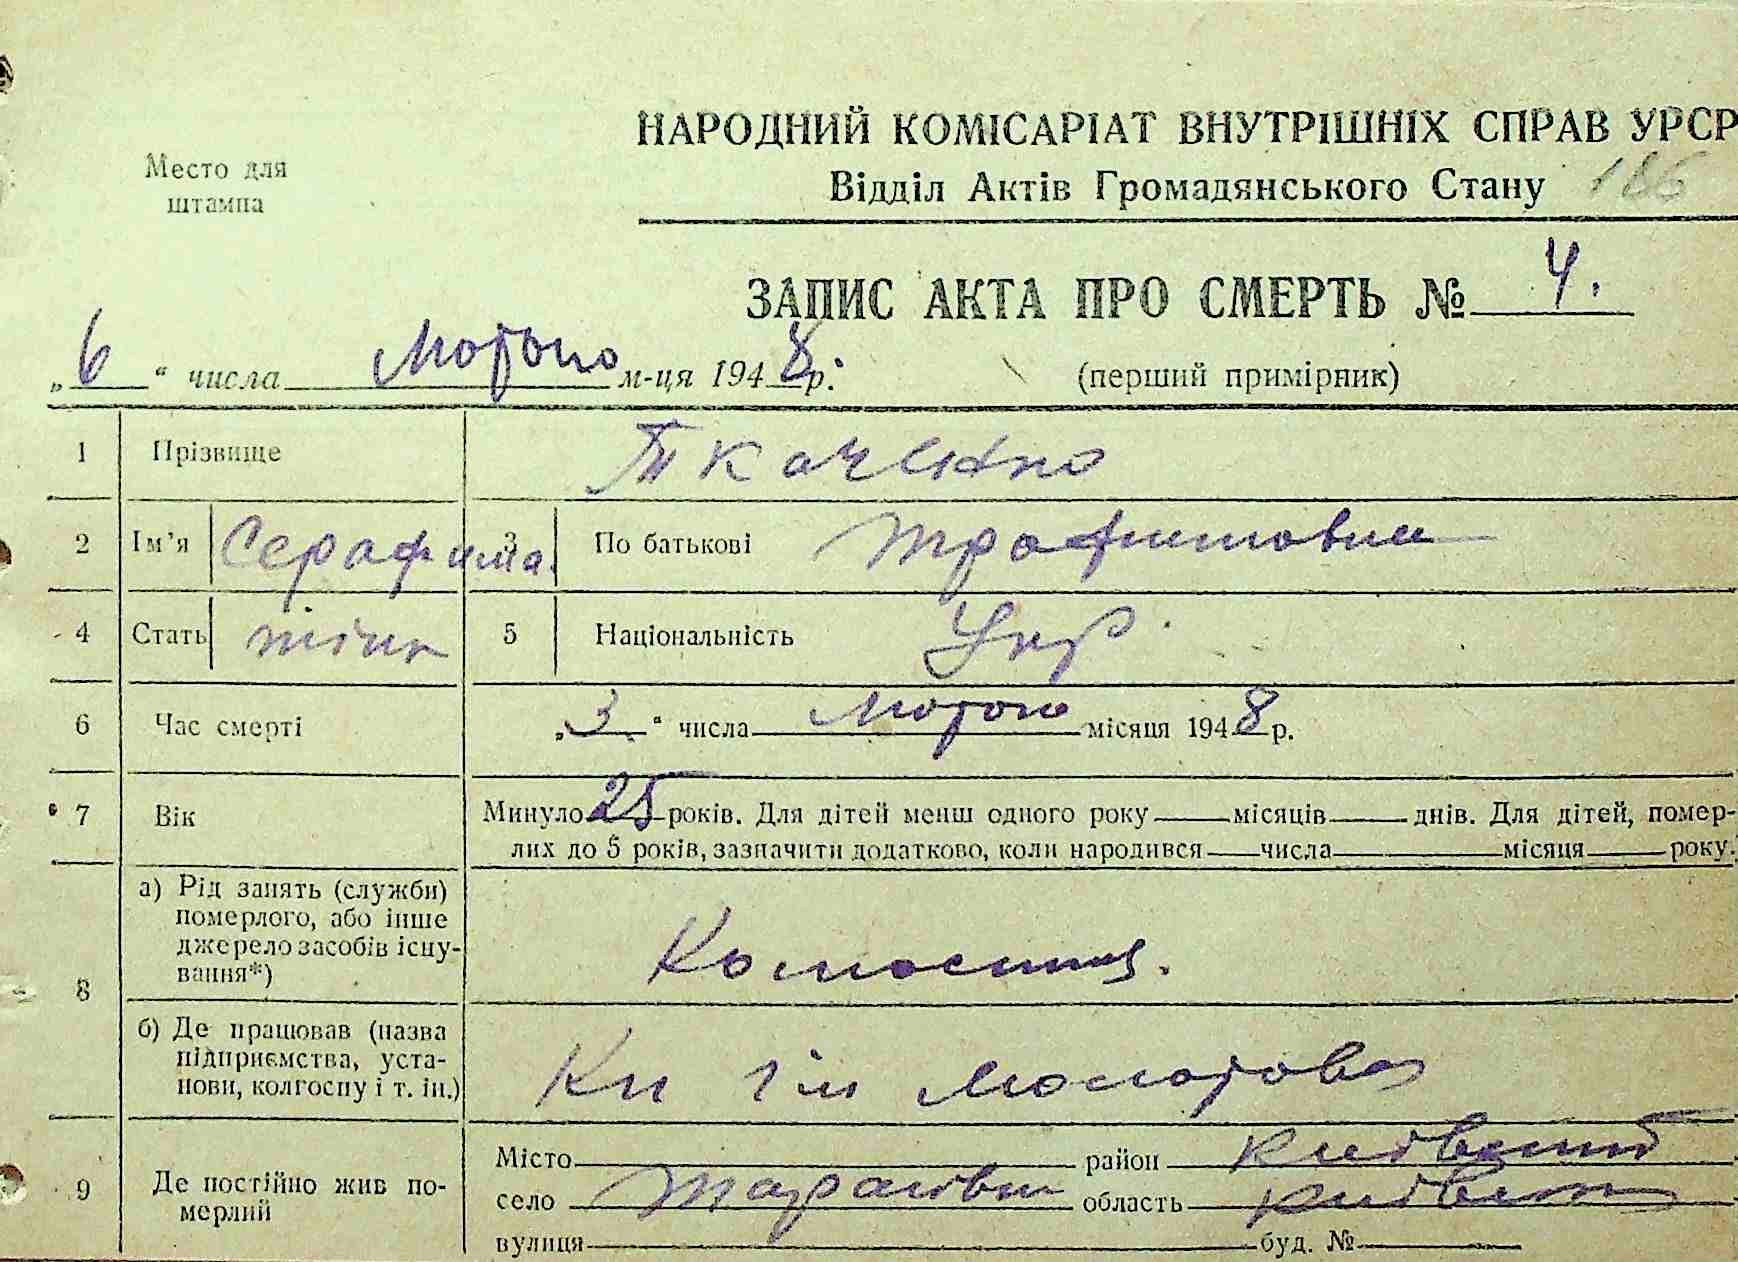 НАРОДНИЙ КОМІСАРІАТ ВНУТРІШНІХ СПРАВ УРСР
Место для
штампа
Відділ Актів Громадянського Стану 186
ЗАПИС АКТА ПРО СМЕРТЬ № 4.
„6“ числа Лютого м-ця 1948 р. (перший примірник)
1 Прізвище Ткаченко
2 Ім’я Серафима. 3 По батькові Трофимовна
4 Стать жінк 5 Національність Укр.
6 Час смерті „3“ числа Лютого місяця 1948 р.
7 Вік Минуло 25 років. Для дітей менш одного року місяців днів. Для дітей, помер-
лих до 5 років, зазначити додатково, коли народився числа місяця року.
8 а) Рід занять (служби)
померлого, або інше
джерело засобів існу-
вання*) Колгоспниця.
б) Де працював (назва
підприємства, уста-
нови, колгоспу і т. ін.) Кл ім Молотова
9 Де постійно жив по-
мерлий
Місто район Київський
село Тарасівка область Київськ
вулиця буд. №